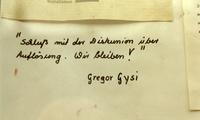 "Schluß mit der Diskussion über
Auflösung. Wir bleiben!"
Gregor Gysi